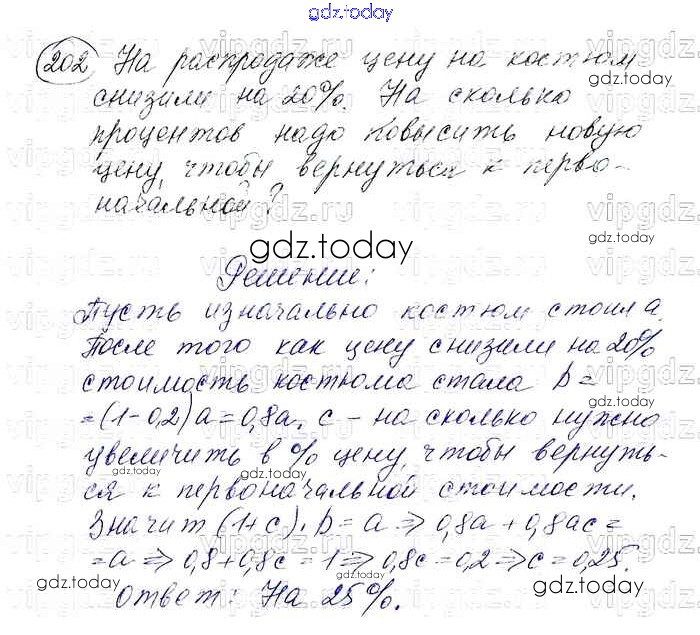 gdz.today
202 На распродаже цену на костюм
снизили на 20%. На сколько
процентов надо повысить новую
цену, чтобы вернуться к перво-
начальной?
gdz.today
Решение:
Пусть изначально костюм стоил а.
После того как цену снизили на 20%
стоимость костюма стала b =
= (1-0,2)a = 0,8a. c - на сколько нужно
увеличить в % цену, чтобы вернуть-
ся к первоначальной стоимости.
Значит (1+c)·b = a ⇒ 0,8a + 0,8ac =
= a ⇒ 0,8+0,8c = 1 ⇒ 0,8c = 0,2 ⇒ c = 0,25.
Ответ: На 25%.